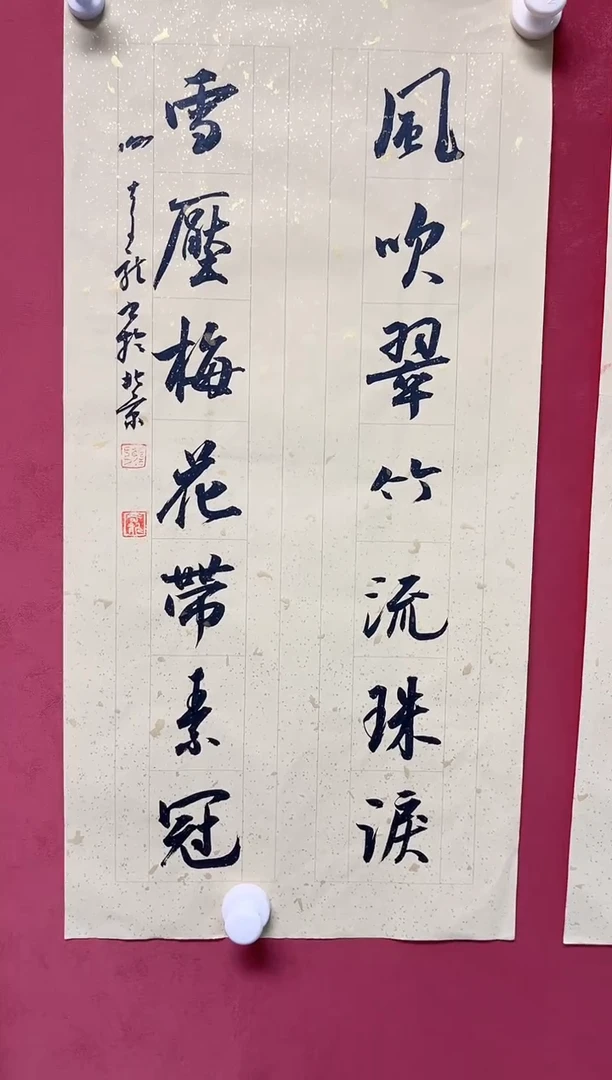 風吹翠竹流珠淚
雪壓梅花帶素冠
書於北京